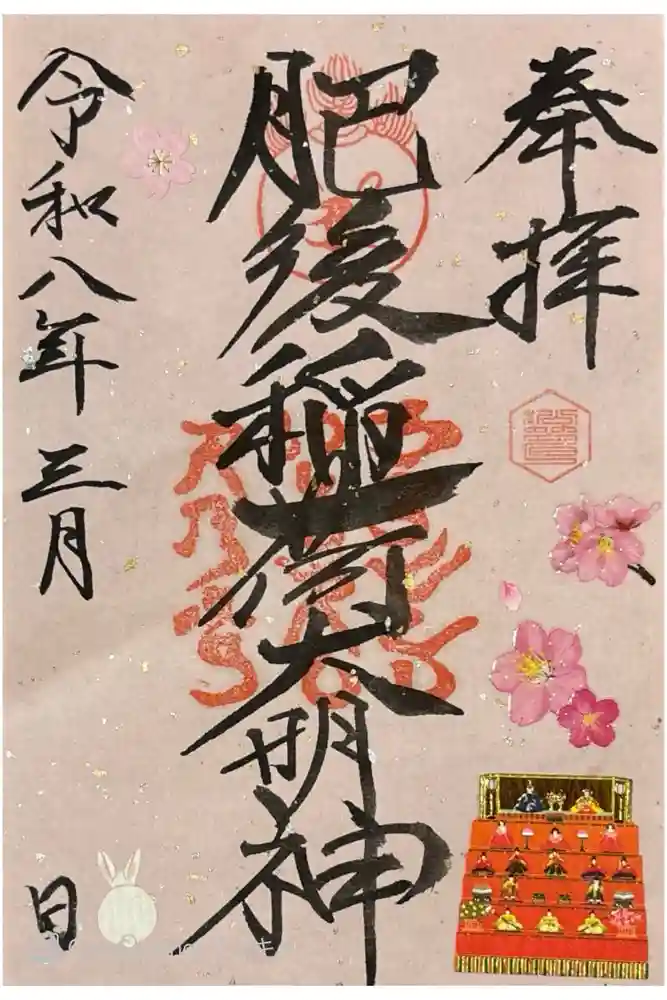 奉拝
肥後稲荷大明神
令和八年 三月 日